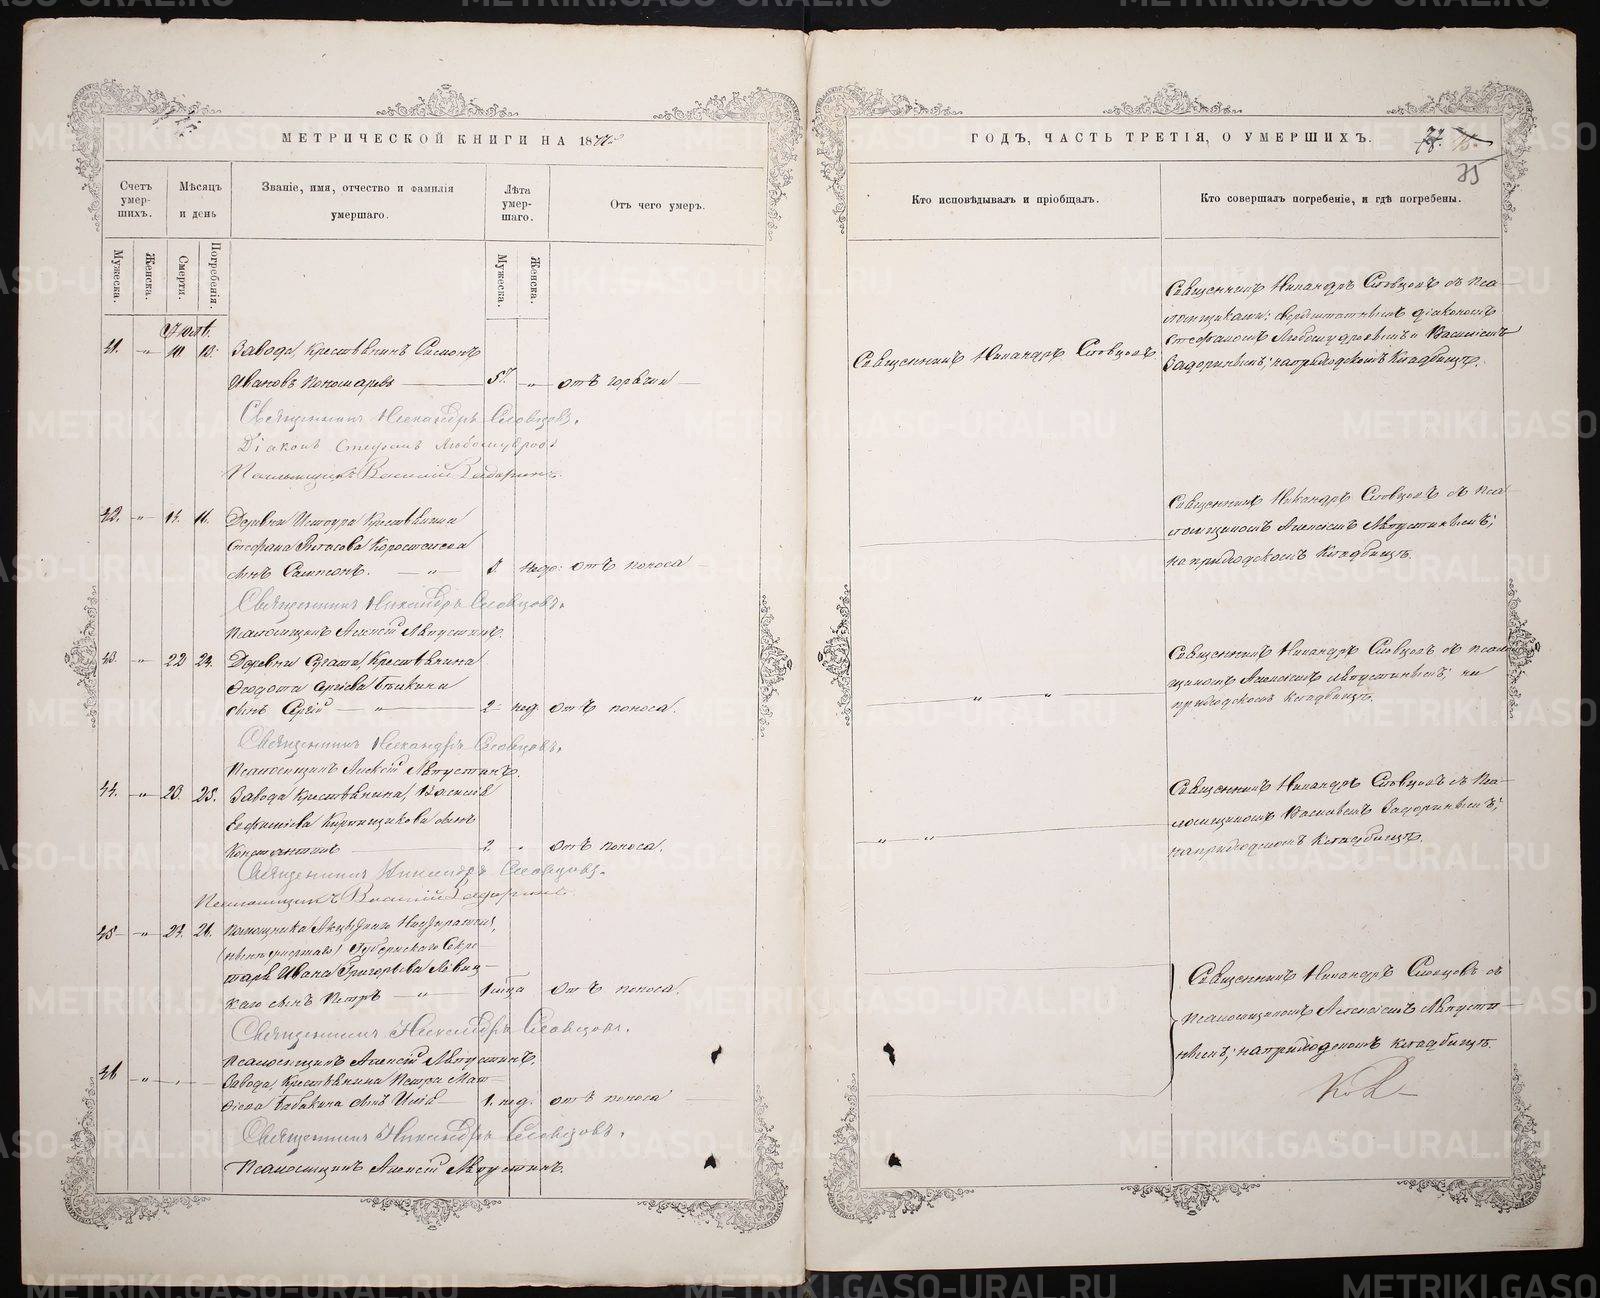 МЕТРИЧЕСКОЙ КНИГИ НА 187
Счетъ умер-шихъ.
Мѣсяцъ и день
Званіе, имя, отчество и фамилія умершаго.
Лѣта умер-шаго.
Отъ чего умеръ.
Мужеска.
Женска.
Смерти.
Погребенія.
Мужеска.
Женска.
Іюль.
41. „ 10 13. Завода крестьянинъ Симонъ
Ивановъ Пономаревъ 57. „ отъ горячки
Священникъ Никандръ Словцовъ.
Діаконъ Стефанъ Любомудровъ
Псаломщикъ Василій Задоринъ.
42. „ 14. 16. Деревни крестьянина
Стефана Коростелева
сынъ Сампсонъ. „ 3. недѣ: отъ поноса
Священникъ Никандръ Словцовъ.
Псаломщикъ Алексій Августинъ.
43. „ 22 24. Деревни крестьянина
Ѳеодота Сергіева Быкина
сынъ Сергій „ 2 нед. отъ поноса.
Священникъ Никандръ Словцовъ.
Псаломщикъ Алексій Августинъ.
44. „ 23. 25. Завода крестьянина Василія
Евфиміева Кирпищикова сынъ
Константинъ 2. „ отъ поноса.
Священникъ Никандръ Словцовъ.
Псаломщикъ Василій Задоринъ.
45 „ 24. 26. Помощника Акцизнаго Надзирателя,
(нынѣ умершаго) Губернскаго Секре-
таря Ивана Григорьева Левиц-
каго сынъ Петръ „ 1 мѣсяца отъ поноса.
Священникъ Никандръ Словцовъ.
Псаломщикъ Алексій Августинъ.
46 „ Завода, крестьянина Петра Мат-
ѳіева Бабакина сынъ Илія 1. нед. отъ поноса
Священникъ Никандръ Словцовъ.
Псаломщикъ Алексій Августинъ.
ГОДЪ, ЧАСТЬ ТРЕТІЯ, О УМЕРШИХЪ.
75
Кто исповѣдывалъ и пріобщалъ.
Кто совершалъ погребеніе, и гдѣ погребены.
Священникъ Никандръ Словцовъ
Священникъ Никандръ Словцовъ съ Пса-
ломщиками: сверхштатнымъ діакономъ
Стефаномъ Любомудровымъ и Василіемъ
Задоринымъ; на приходскомъ кладбищѣ.
Священникъ Никандръ Словцовъ съ Пса-
ломщикомъ Алексіемъ Августинымъ;
на приходскомъ кладбищѣ.
Священникъ Никандръ Словцовъ съ псалом-
щикомъ Алексіемъ Августинымъ; на
приходскомъ кладбищѣ.
Священникъ Никандръ Словцовъ съ Пса-
ломщикомъ Василіемъ Задоринымъ;
на приходскомъ кладбищѣ.
Священникъ Никандръ Словцовъ съ
Псаломщикомъ Алексіемъ Августи-
нымъ; на приходскомъ кладбищѣ.
METRIKI.GASO-URAL.RU